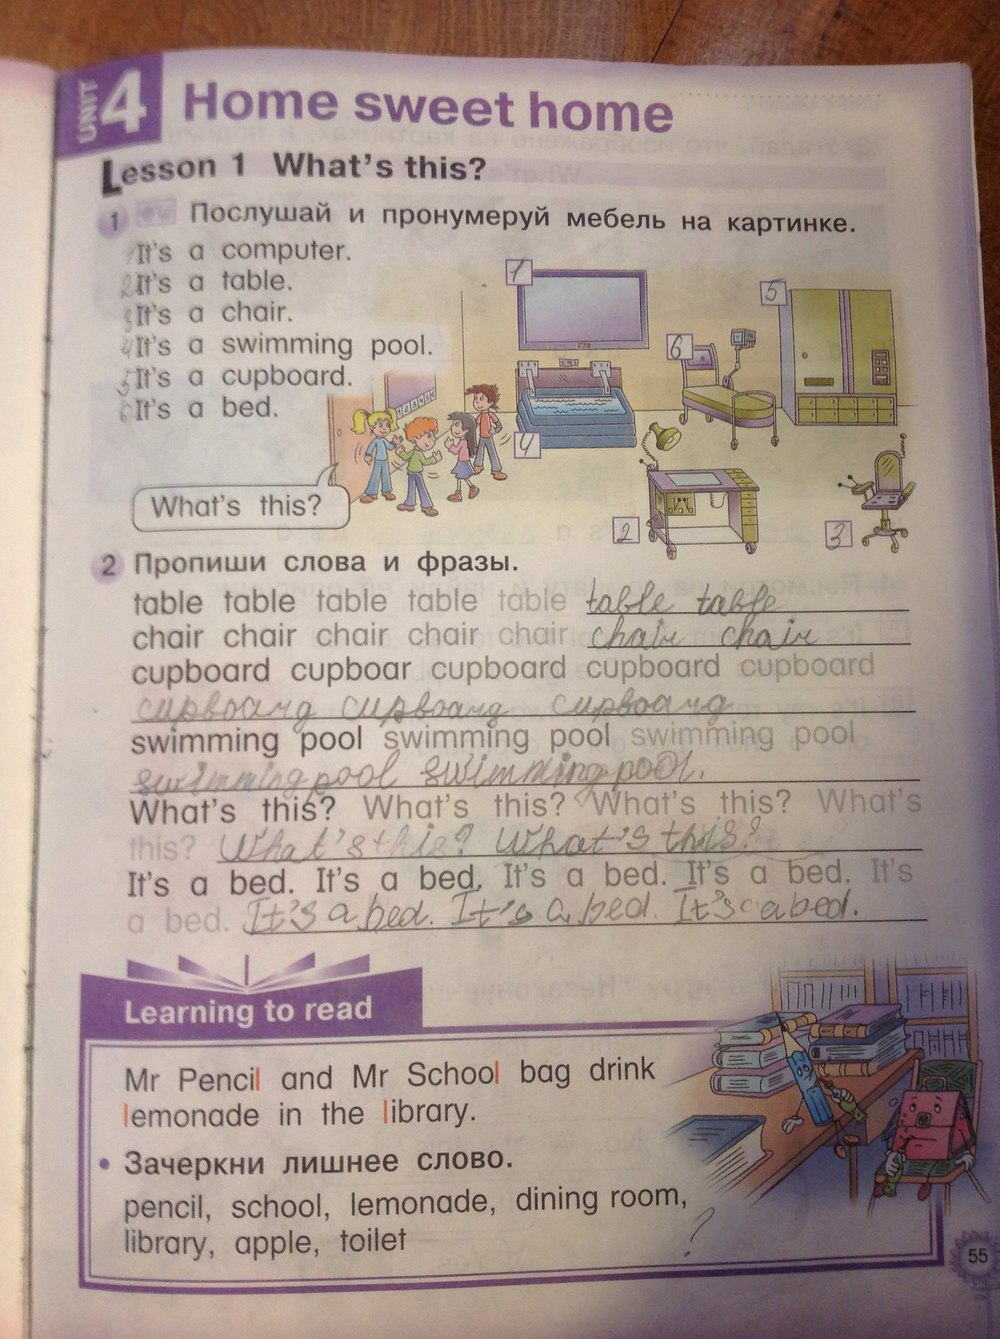 UNIT 4 Home sweet home
Lesson 1 What's this?
1 Послушай и пронумеруй мебель на картинке.
1 It's a computer.
2 It's a table.
3 It's a chair.
4 It's a swimming pool.
5 It's a cupboard.
6 It's a bed.
1
5
6
4
2
3
What's this?
2 Пропиши слова и фразы.
table table table table table table table
chair chair chair chair chair chair chair
cupboard cupboar cupboard cupboard cupboard
cupboard cupboard cupboard
swimming pool swimming pool swimming pool
swimming pool swimming pool.
What's this? What's this? What's this? What's
this? What's this? What's this?
It's a bed. It's a bed. It's a bed. It's a bed. It's
a bed. It's a bed. It's a bed. It's a bed.
Learning to read
Mr Pencil and Mr School bag drink
lemonade in the library.
• Зачеркни лишнее слово.
pencil, school, lemonade, dining room,
library, apple, toilet
?
55